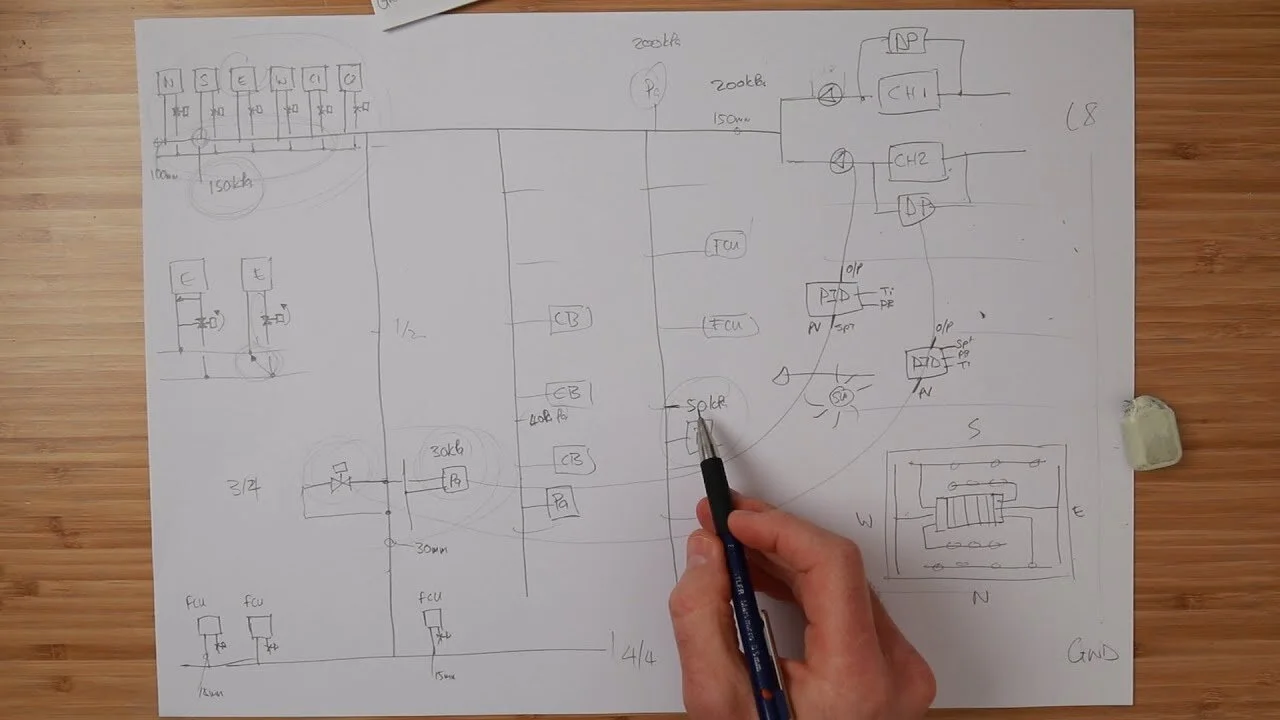 200kPa
DP
N S E W C1 C2
Pa
200kPa
CH1
150mm
C8
CH2
100mm
150kPa
DP
FCU
E E
O/P
PID
Ti
PB
PV SPT
CB
FCU
1/2
O/P
Spt
PB
Ti
PID
PV
CB
50kPa
40kPa
SUN
S
30kPa
CB
3/4
Pa
Pa
W E
30mm
N
FCU FCU
FCU
4/4
GND
15mm
15mm